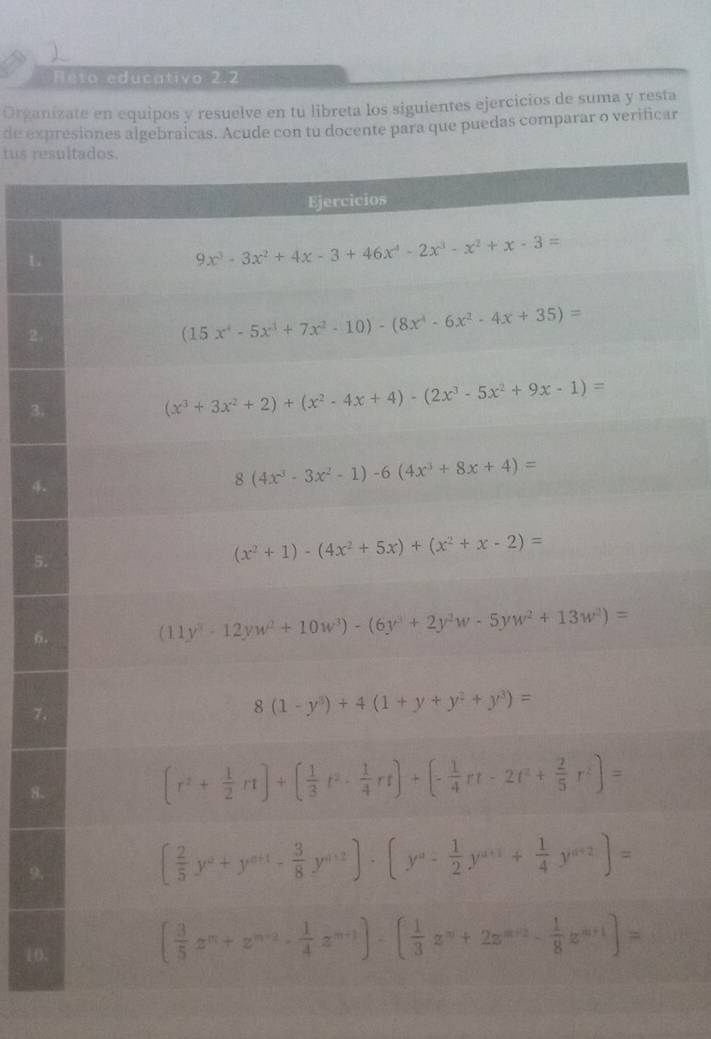 2
Reto educativo 2.2
Organízate en equipos y resuelve en tu libreta los siguientes ejercicios de suma y resta
de expresiones algebraicas. Acude con tu docente para que puedas comparar o verificar
tus resultados.
Ejercicios
1. 9x³ - 3x² + 4x - 3 + 46x⁴ - 2x³ - x² + x - 3 =
2. (15 x⁴ - 5x³ + 7x² - 10) - (8x⁴ - 6x² - 4x + 35) =
3. (x³ + 3x² + 2) + (x² - 4x + 4) - (2x³ - 5x² + 9x - 1) =
4. 8 (4x³ - 3x² - 1) -6 (4x³ + 8x + 4) =
5. (x² + 1) - (4x² + 5x) + (x² + x - 2) =
6. (11y³ - 12yw² + 10w³) - (6y³ + 2y²w - 5yw² + 13w³) =
7. 8 (1 - y³) + 4 (1 + y + y² + y³) =
8. (r² + 1/2 rt) + (1/3 t² - 1/4 rt) + (- 1/4 rt - 2t² + 2/5 r²) =
9. (2/5 yᵃ + yᵃ⁺¹ - 3/8 yᵃ⁺²) - (yᵃ - 1/2 yᵃ⁺¹ + 1/4 yᵃ⁺²) =
10. (3/5 zᵐ + zᵐ⁺² - 1/4 zᵐ⁺¹) - (1/3 zᵐ + 2zᵐ⁺² - 1/8 zᵐ⁺¹) =